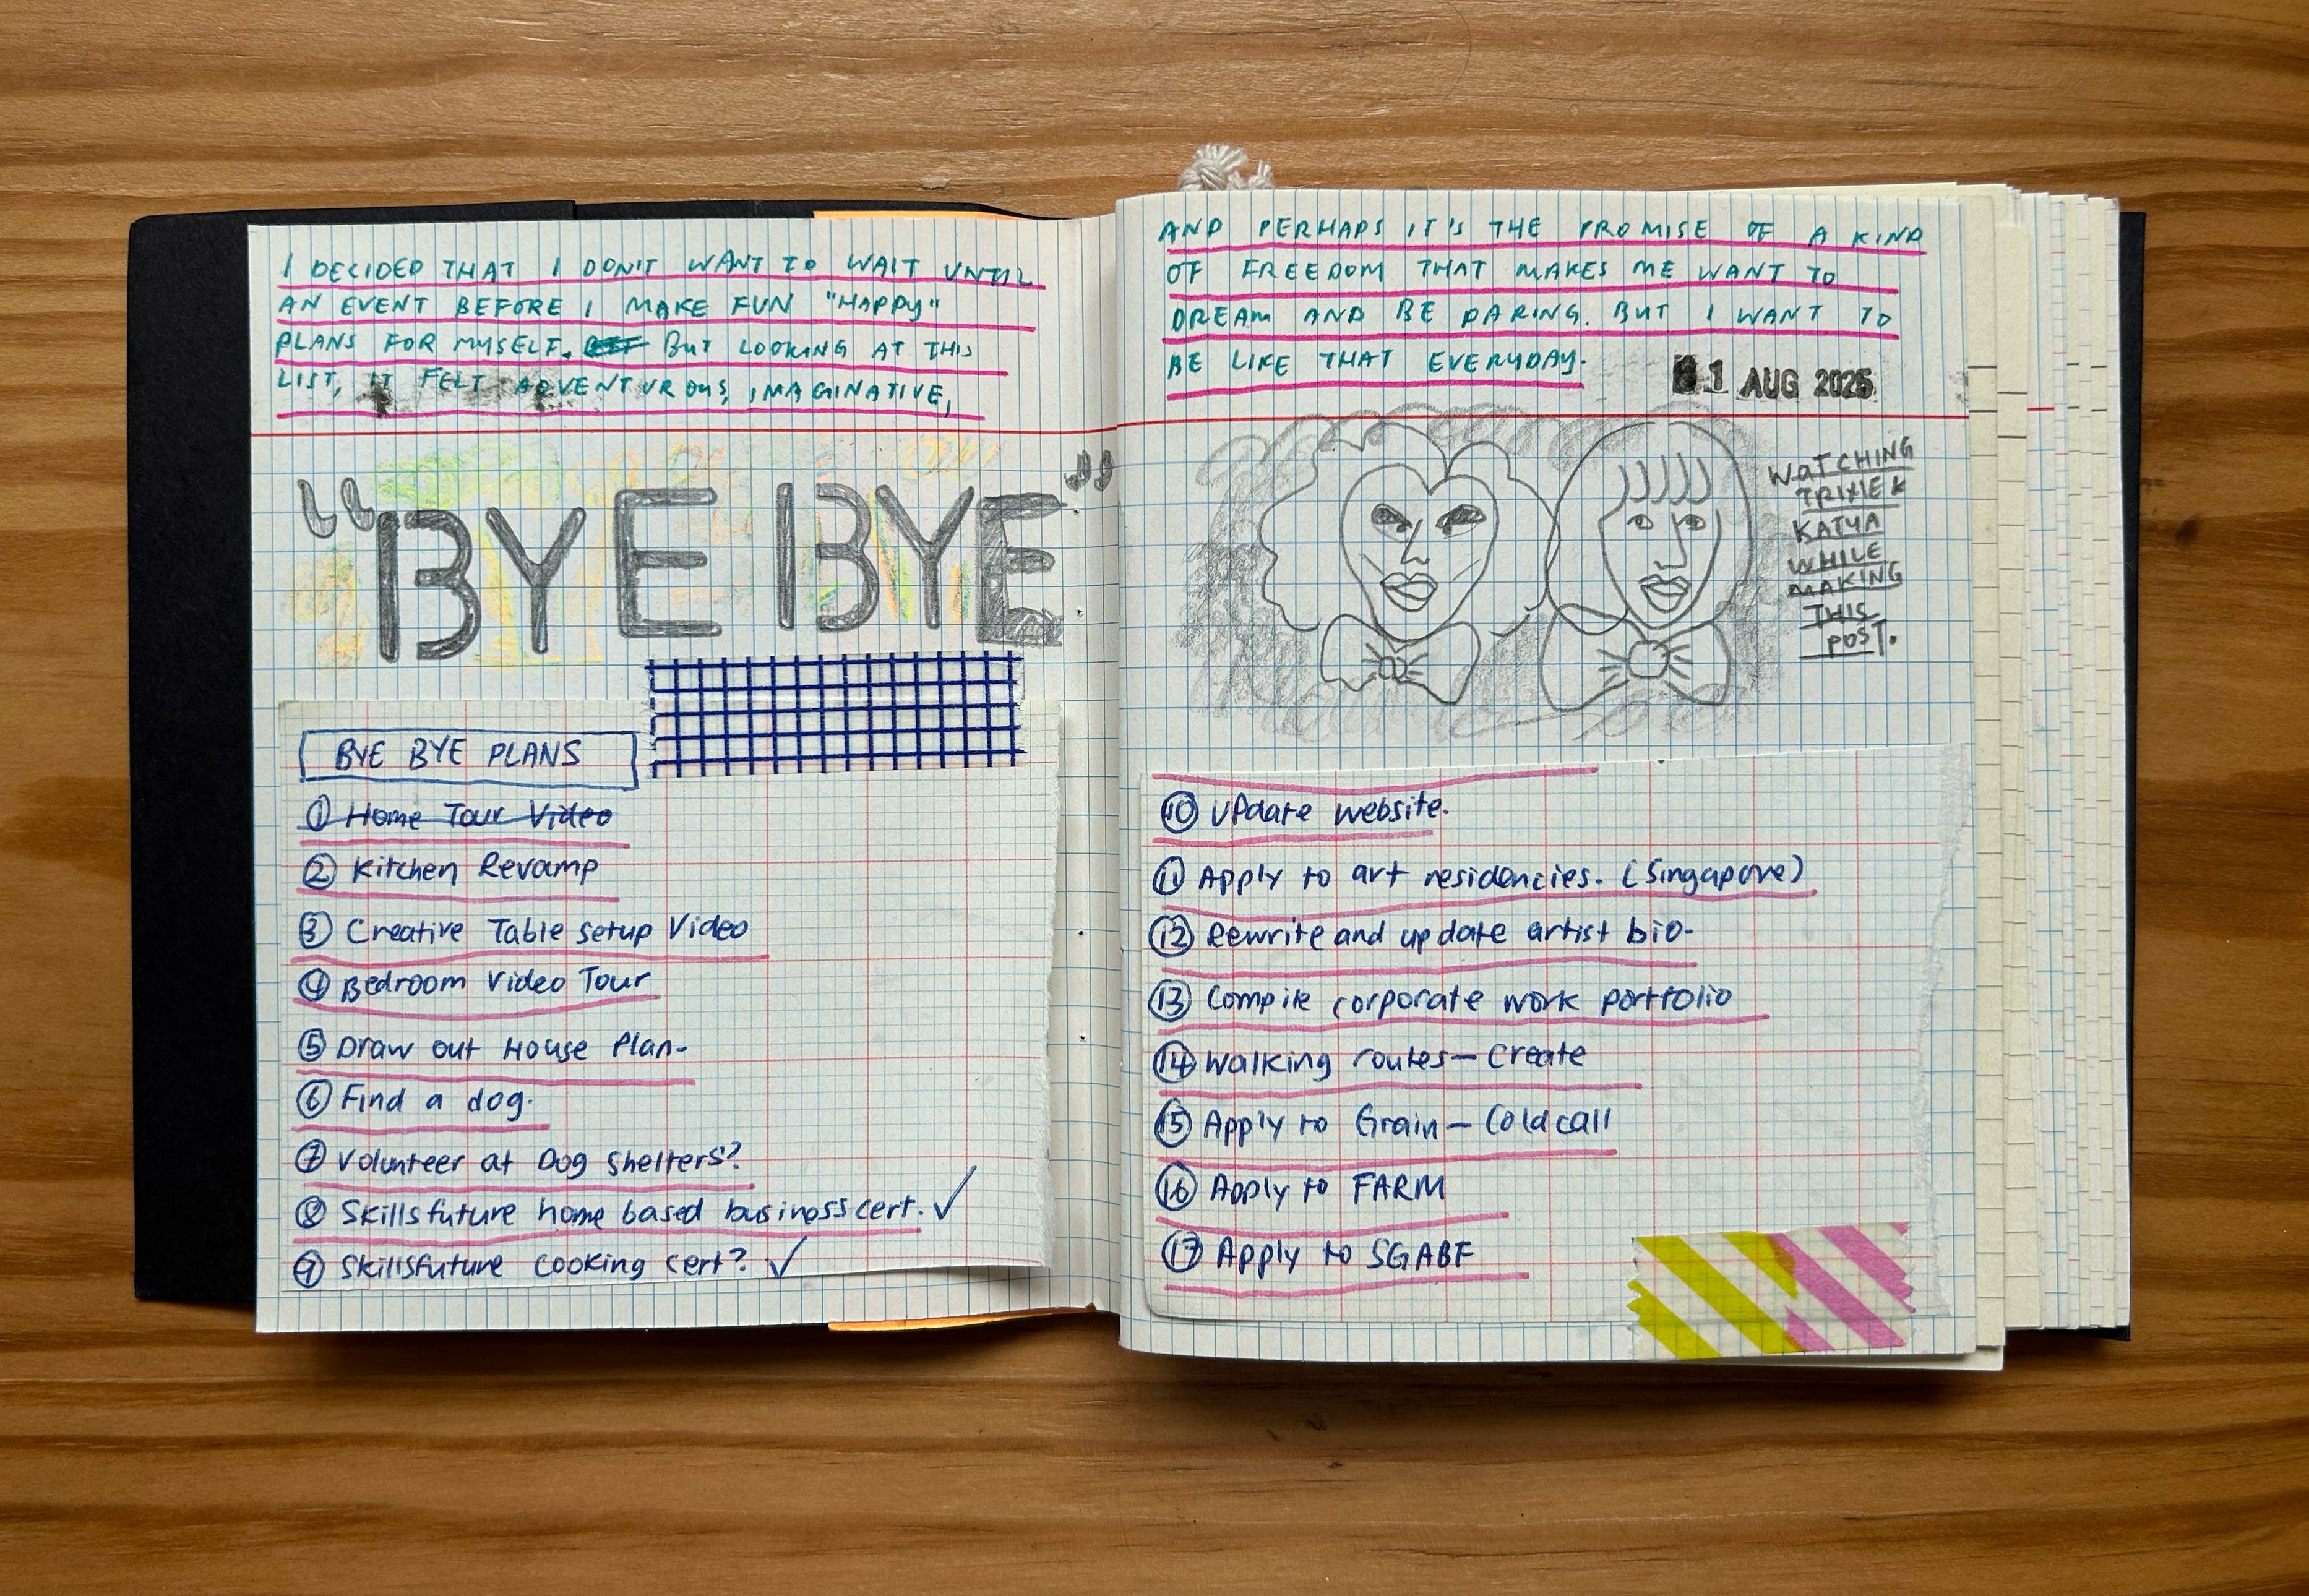 I DECIDED THAT I DON'T WANT TO WAIT UNTIL
AN EVENT BEFORE I MAKE FUN "HAPPY"
PLANS FOR MYSELF. BUT LOOKING AT THIS
LIST, IT FELT ADVENTUROUS, IMAGINATIVE,
"BYE BYE"
BYE BYE PLANS
① Home Tour Video
② Kitchen Revamp
③ Creative Table setup Video
④ Bedroom Video Tour
⑤ Draw out House Plan-
⑥ Find a dog.
⑦ Volunteer at Dog Shelters?
⑧ Skillsfuture home based business cert. ✓
⑨ Skillsfuture cooking cert? ✓
AND PERHAPS IT'S THE PROMISE OF A KIND
OF FREEDOM THAT MAKES ME WANT TO
DREAM AND BE DARING. BUT I WANT TO
BE LIKE THAT EVERYDAY.
1 AUG 2025
WATCHING
TRIXIE &
KATYA
WHILE
MAKING
THIS
POST.
⑩ Update website.
⑪ Apply to art residencies. (Singapore)
⑫ Rewrite and update artist bio-
⑬ Compile corporate work portfolio
⑭ Walking routes — Create
⑮ Apply to Grain — Cold call
⑯ Apply to FARM
⑰ Apply to SGABF